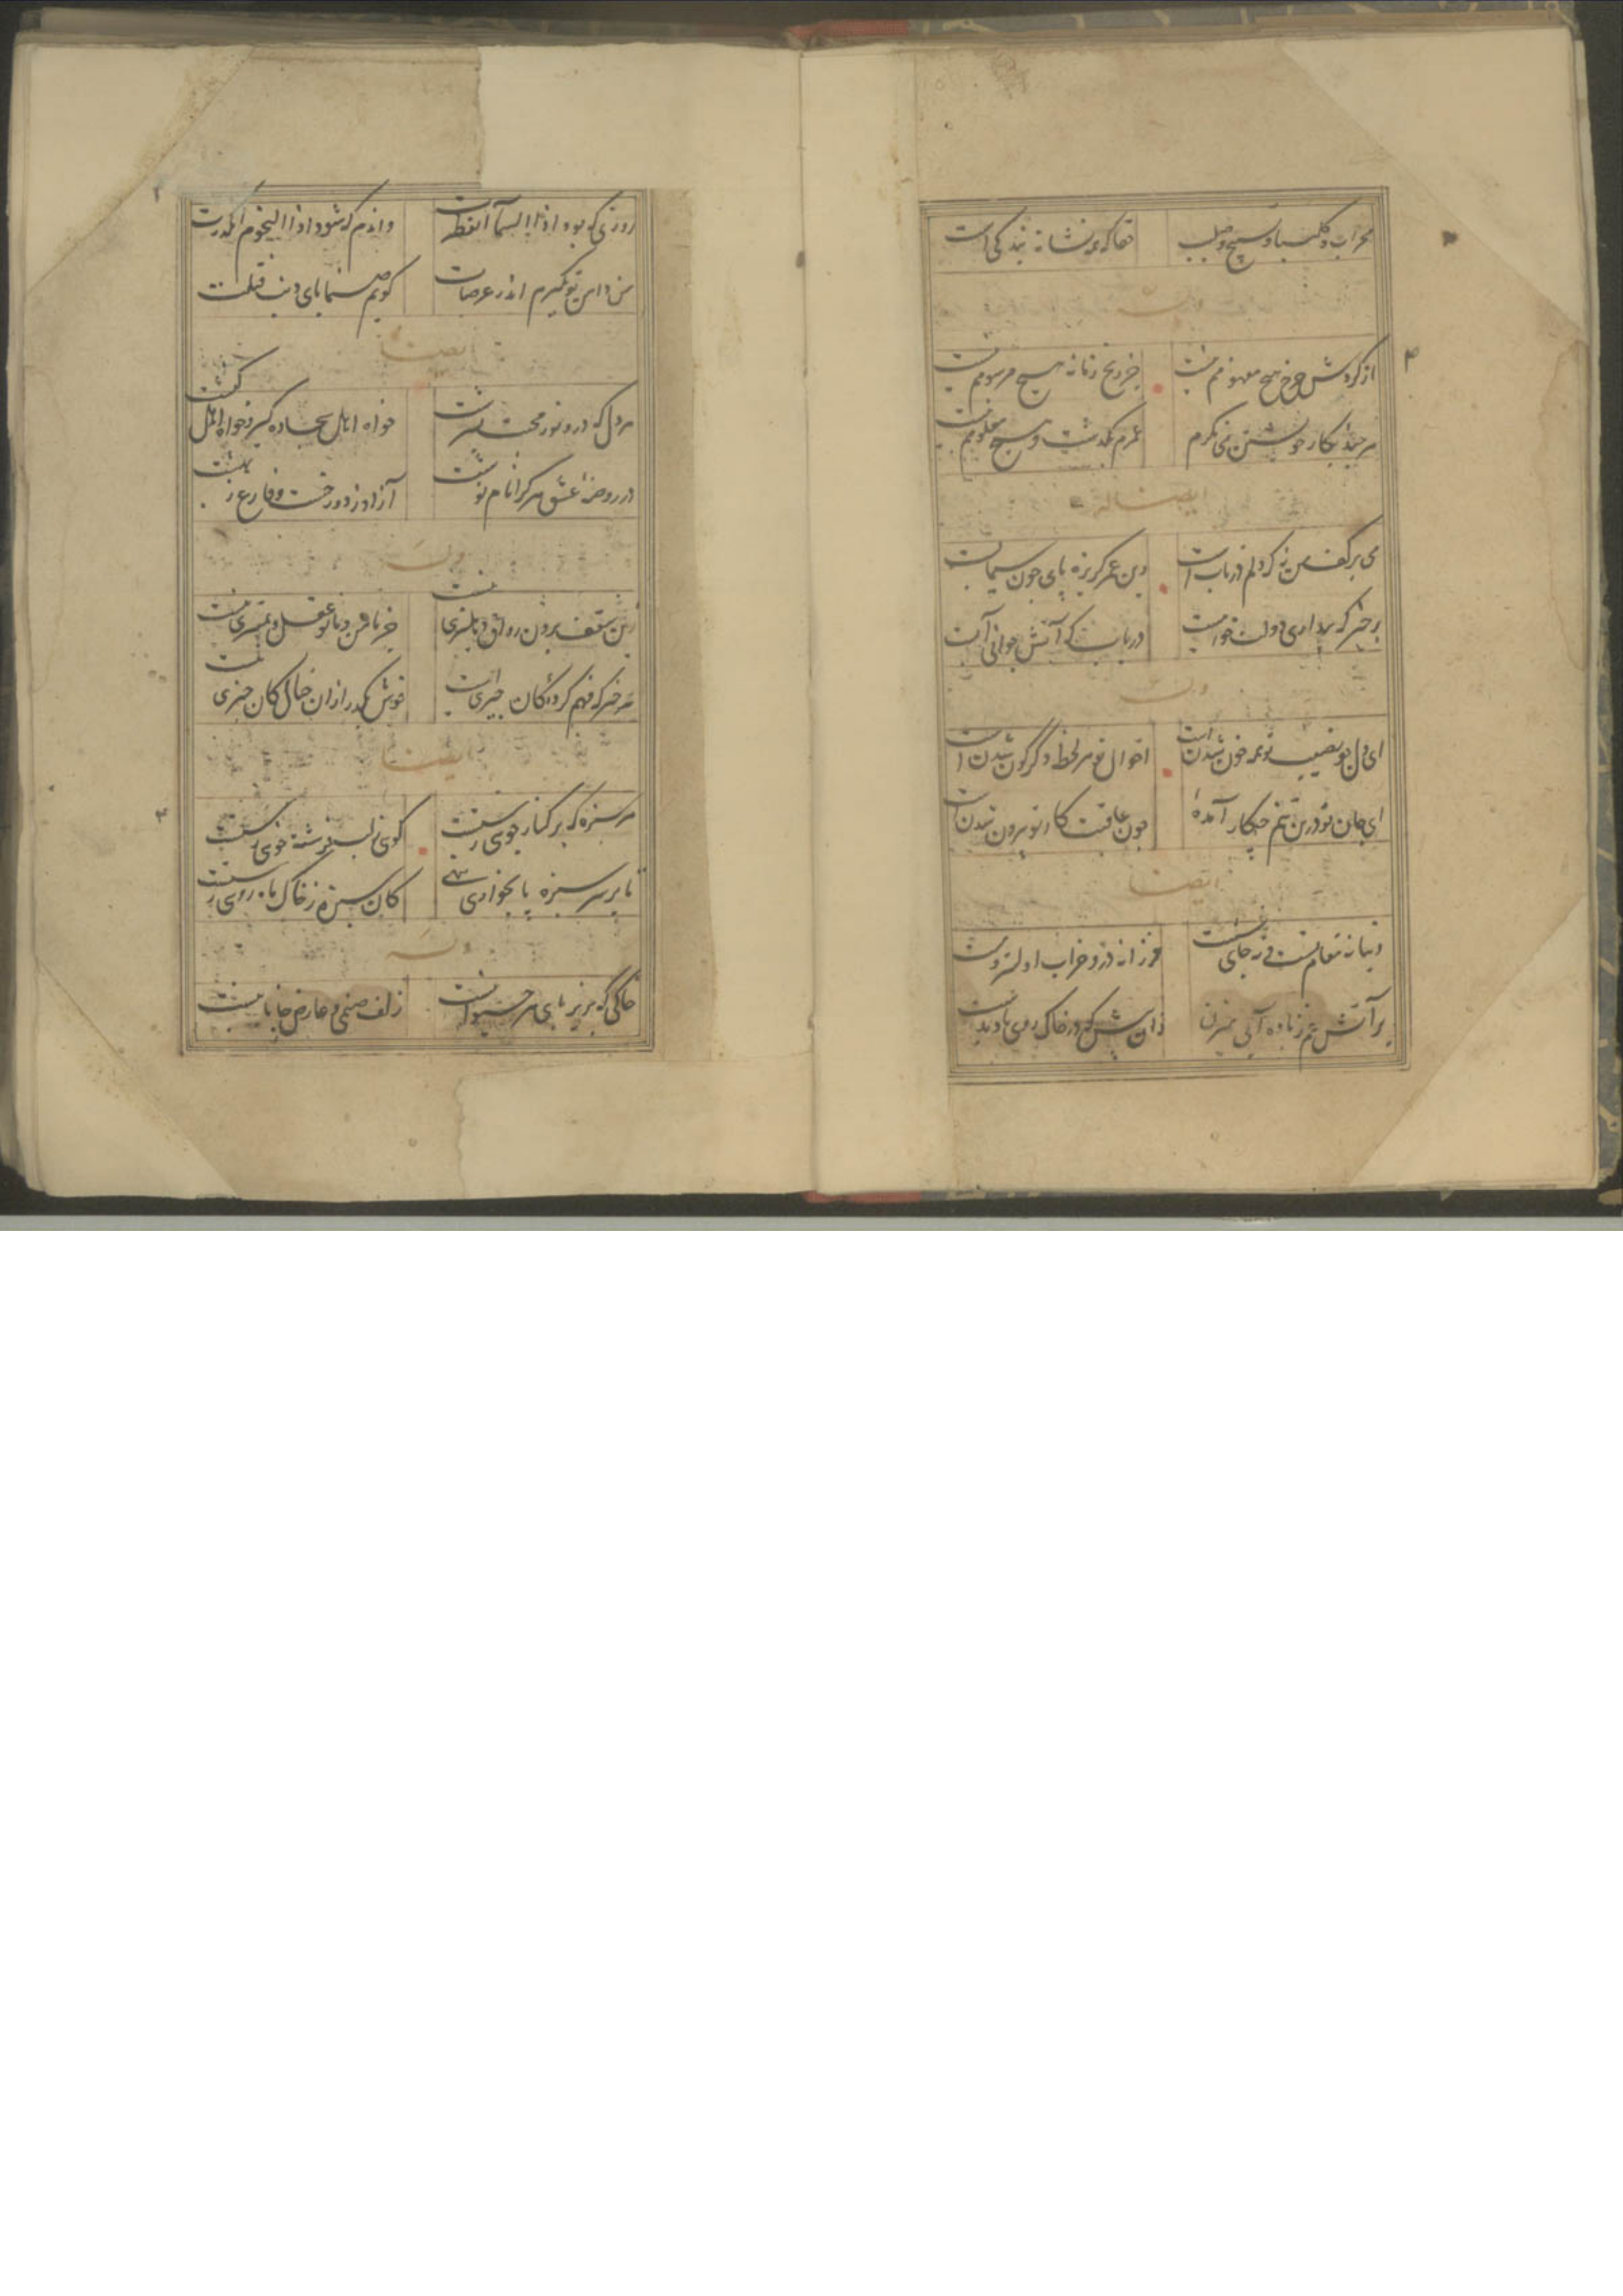 محراب و کلیسا و تسبیح و صلیب حقا که همه نشانه بندگی است
وله
از گردش چرخ هیچ مفهومم نیست جز رنج زمانه هیچ مرسومم نیست
هر چند بکار خویشتن می نگرم عمرم بگذشت و هیچ معلومم نیست
ایضا له
می بر کف من نه که دلم در تابست وین عمر گریزه پای چون سیمابست
برخیز که بیداری دولت خوابست دریاب که آتش جوانی آبست
وله
ای دل چو نصیب تو همه خون شدن است احوال تو هر لحظه دگرگون شدن است
ای جان تو درین تنم چکار آمدهٔ چون عاقبت کار تو بیرون شدن است
ایضا
دنیا نه مقام تست نی جای نشست فرزانه درو خراب اولیتر و مست
بر آتش غم ز باده آبی میزن زان پیش که در خاک روی باد بدست
روزی که بود اذا السماء انفطرت واندم که شود اذا النجوم انکدرت
من دامن تو بگیرم اندر عرصات گویم صنما بای ذنب قتلت
ایضا
هر دل که درو نور محبت بسرشت خواه اهل سجاده گیر و خواه اهل کنشت
در روضهٔ عشق هر کرا نام نوشت آزاد ز دوزخست و فارغ ز بهشت
وله
زین سقف برون رواق و دهلیزی نیست جز با من و با تو عقل و تمیزی نیست
هر چیز که فهم کردهٔ کان چیزی است خوش بگذر ازان خیال کان چیزی نیست
ایضا
هر سبزه که بر کنار جویی رستست گویی ز لب فرشته خویی رستست
تا بر سر سبزه پا بخواری ننهی کان سبزه ز خاک ماه رویی رستست
وله
خاکی که بزیر پای هر حیوانیست زلف صنمی و عارض جانانیست